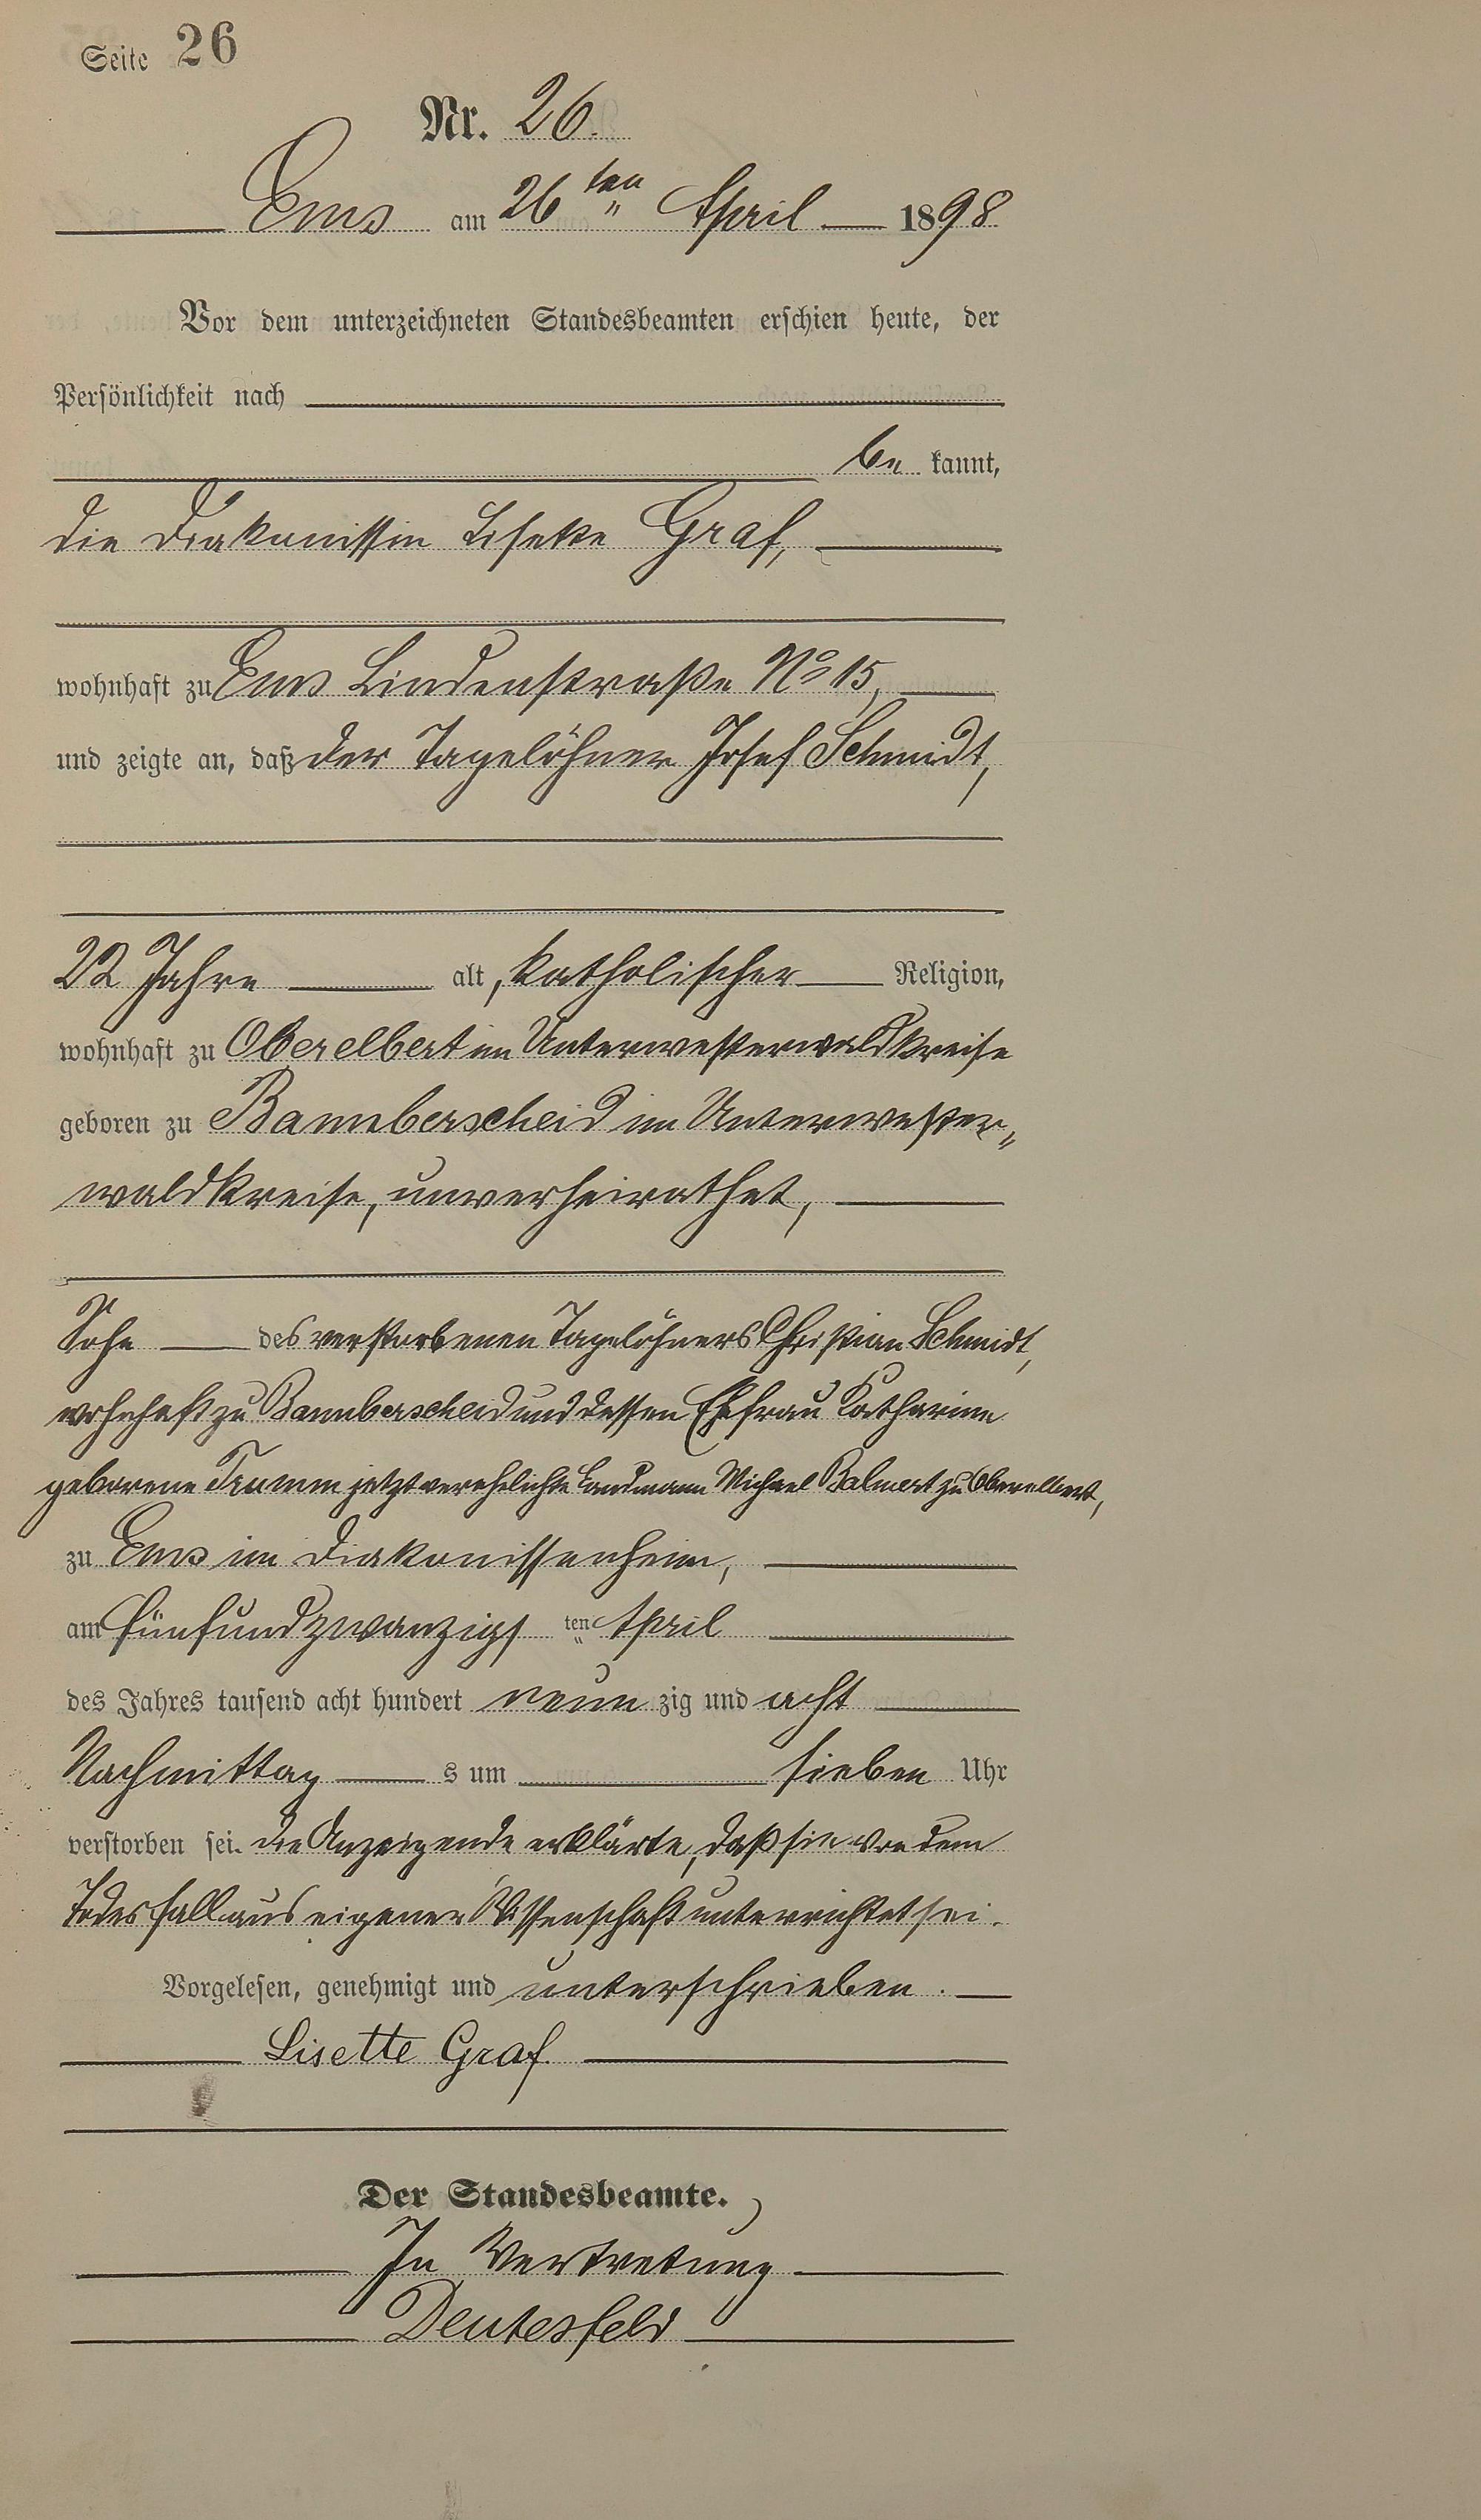 Seite 26
Nr. 26.
Ems am 26ten April 1898
Vor dem unterzeichneten Standesbeamten erschien heute, der
Persönlichkeit nach
be kannt,
die Diakonissin Lisette Graf,
wohnhaft zu Ems Lindenstraße No 15,
und zeigte an, daß der Tagelöhner Josef Schmidt,
22 Jahre alt, katholischer Religion,
wohnhaft zu Oberelbert im Unterwesterwaldkreise
geboren zu Bannberscheid im Unterwester„
waldkreise, unverheirathet,
Sohn des verstorbenen Tagelöhners Christian Schmidt,
wohnhaft zu Bannberscheid und dessen Ehefrau Katharina
geborene jetzt verehelichte Landmann Michael Balmert zu Oberelbert,
zu Ems im Diakonissenheim,
am fünfundzwanzigs ten April
des Jahres tausend acht hundert neun zig und acht
Nachmittag s um sieben Uhr
verstorben sei. Die Anzeigende erklärte, daß sie von dem
Todesfall aus eigener Wissenschaft unterrichtet sei.
Vorgelesen, genehmigt und unterschrieben.
Lisette Graf
Der Standesbeamte.
In Vertretung
Deutesfeld